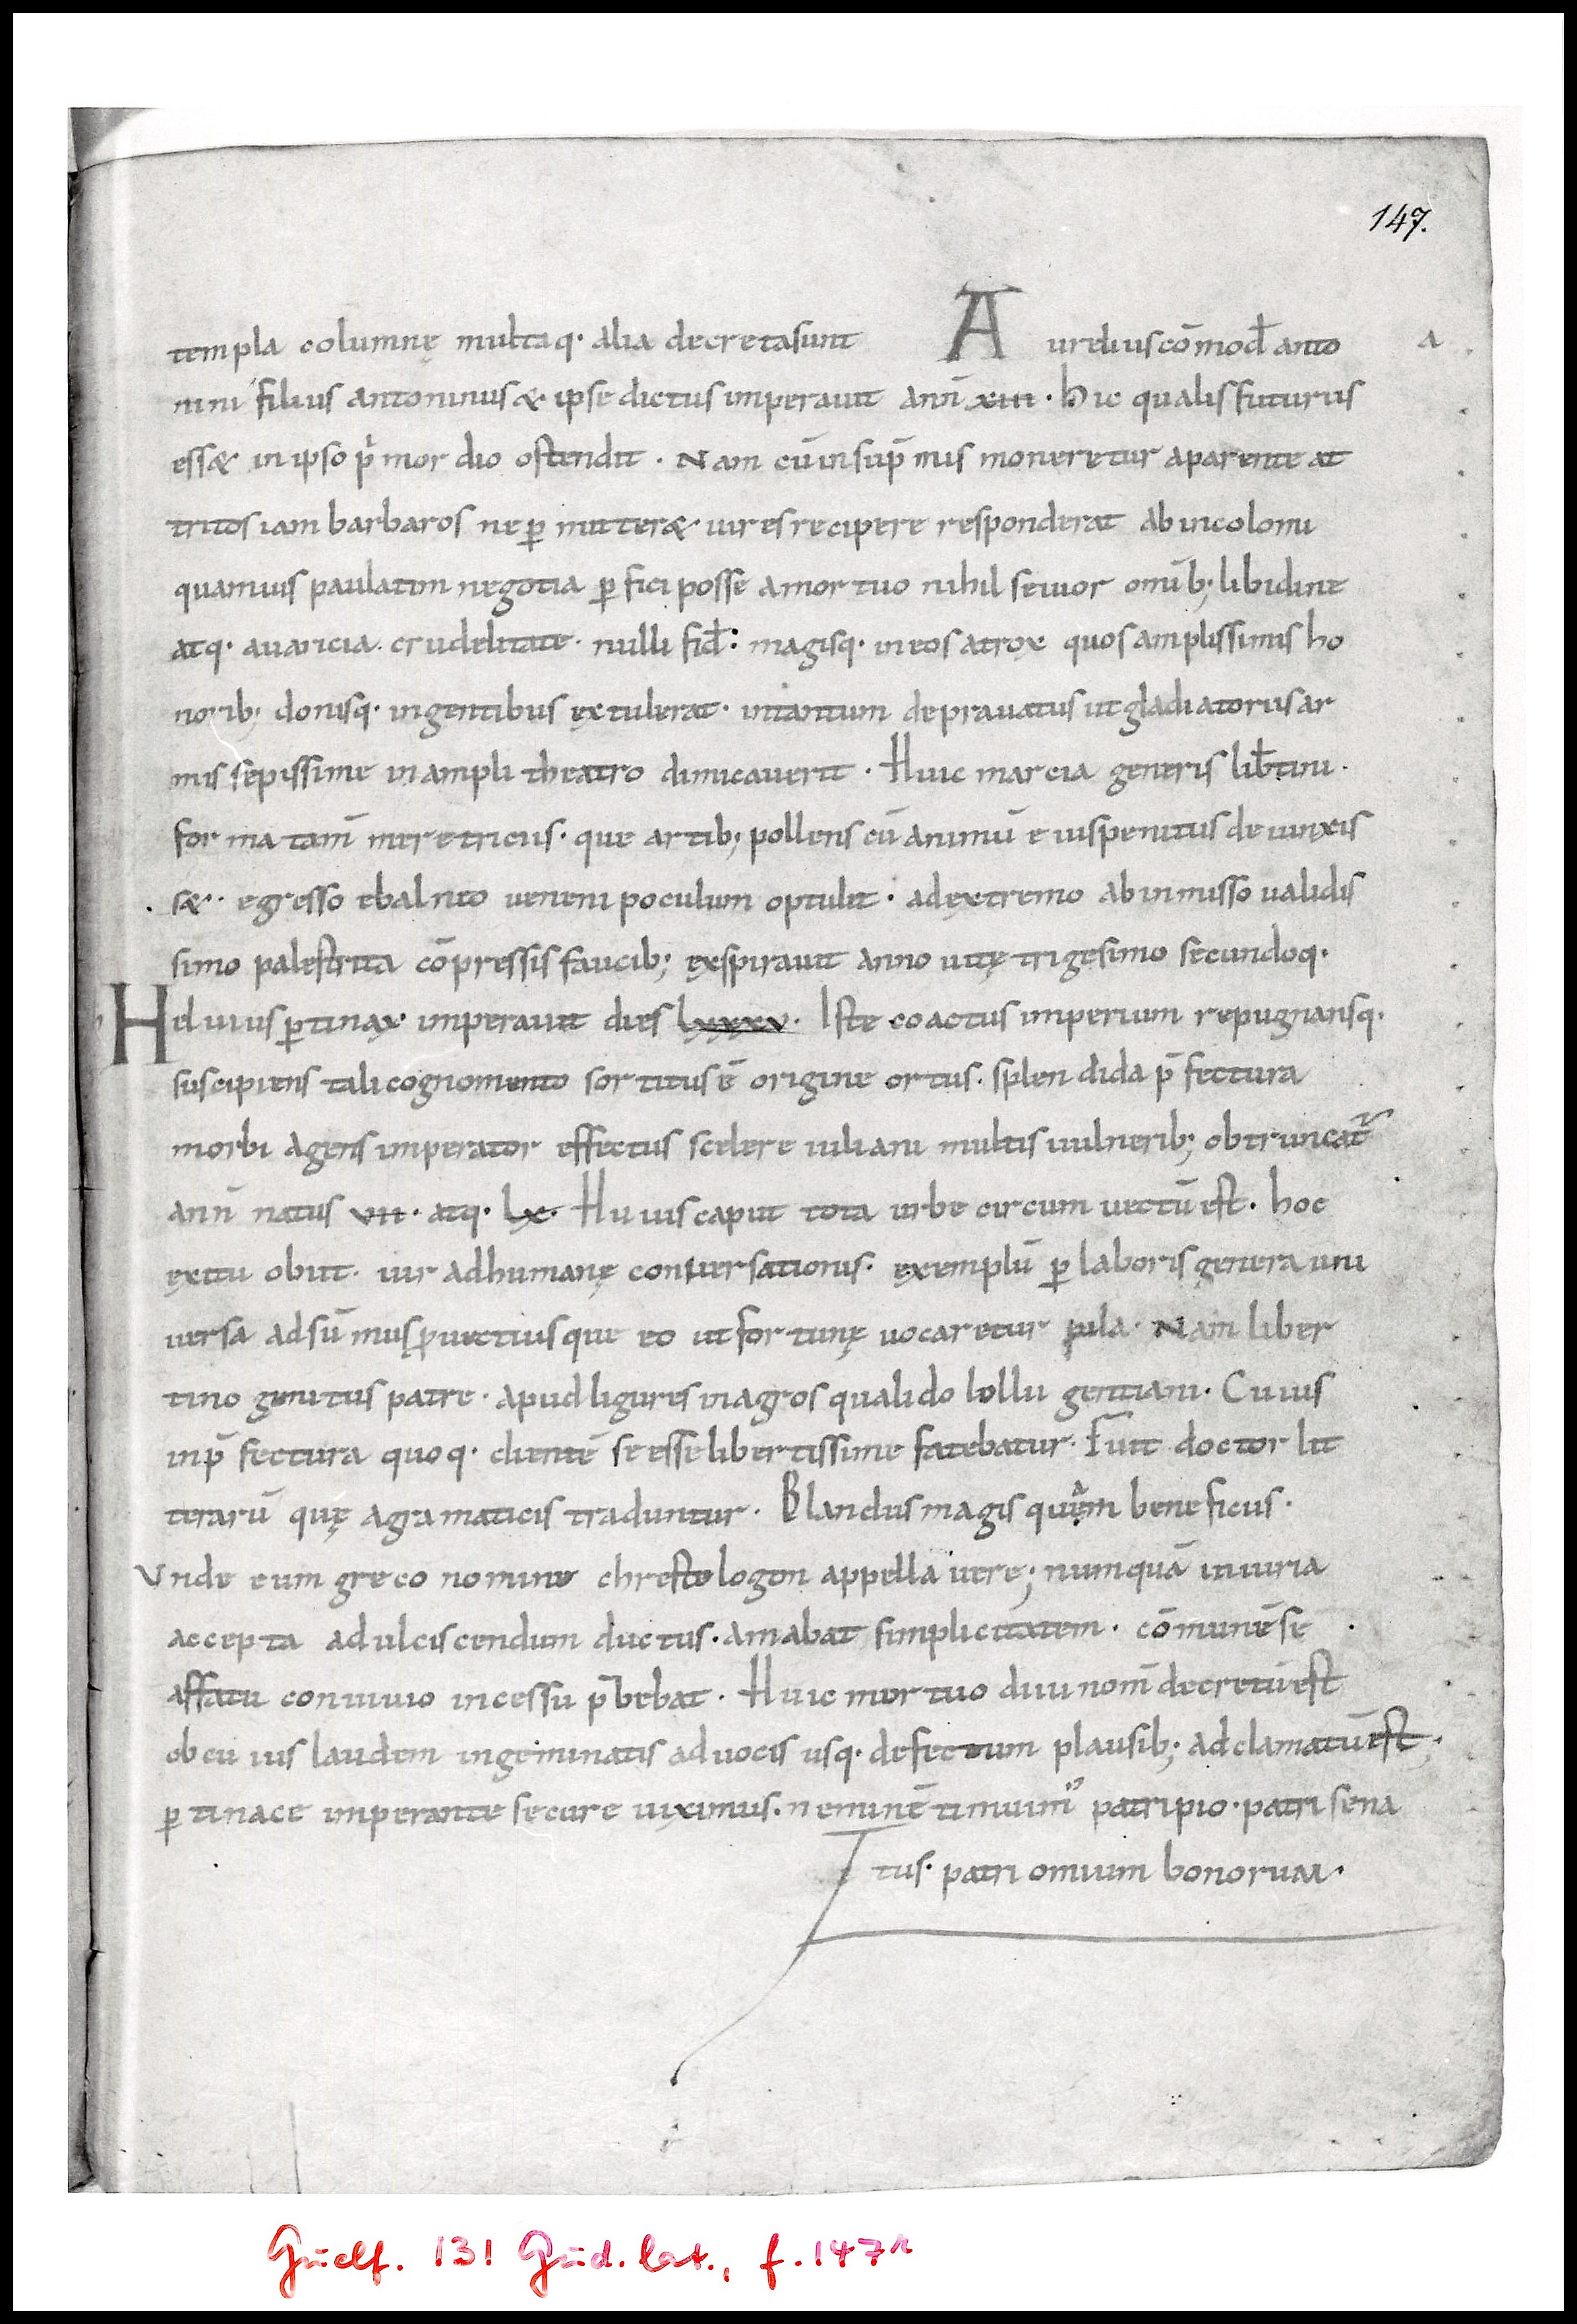 147.
templa columnę multaq· alia decreta sunt Aurelius cōmod̄ anto
nini filius antoninus & ipse dictus imperauit ann̄ xiii · hic qualis futurus
ess& in ipso p̍mordio ostendit · Nam cū in sup̄mis moneretur a parente at
tritos iam barbaros ne ꝑmitter& uires recipere responderat ab incolomi
quamuis paulatim negotia ꝑfici posse a mortuo nihil seuior omīb; libidine
atq· auaricia · crudelitate · nulli fid̄ : magisq· in eos atrox quos amplissimis ho
norib; donisq· ingentibus ęxtulerat · intantum deprauatus ut gladiatoriis ar
mis sepissime in ampliteatro dimicauerit · Huic marcia generis lib̄tini ·
forma tam̄ meretriciis · que artib; pollens cū animū eius penitus deuinxis
s& · egresso e balneo ueneni poculum optulit · ad ęxtremo ab inmisso ualidis
simo palestrita cōpressis faucib; ęxspirauit anno uitę trigesimo secundoq·
Heluius ꝑtinax imperauit dies lxxxv · Iste coactus imperium repugnansq·
suscipiens tali cognomento sortitus ē origine ortus · splendida p̄fectura
morbi agens imperator effectus scelere iuliani multis uulnerib; obtruncat᷑
ann̄ natus vii · atq· lx · Huius caput tota urbe circumuectū est · hoc
ęxitu obiit · uir ad humanę conuersationis · ęxemplū ꝑ laboris genera uni
uersa ad sūmus ꝓuectiusque eo ut fortunę uocaretur pila · Nam liber
tino genitus patre · apud ligures in agro squalido lollii gentiani · Cuius
in p̄fectura quoq· clientē se esse libertissime fatebatur · Fuit doctor lit
terarū quę agramaticis traduntur · Blandus magis quam beneficus ·
Vnde eum greco nomine chrestologon appellauere; numquā iniuria
accepta ad ulciscendum ductus · amabat simplicitatem · cōmunē se
affatu conuiuio incessu p̄bebat · Huic mortuo diui nom̄ decretū est
ob cuius laudem ingeminatis ad uocis usq· defectum plausib; adclamatū est;
ꝑtinace imperante secure uiximus · neminē timuim᾽ patri pio · patri sena
tus · patri omnium bonorum ·
Guelf. 131 Gud. lat., f. 147r